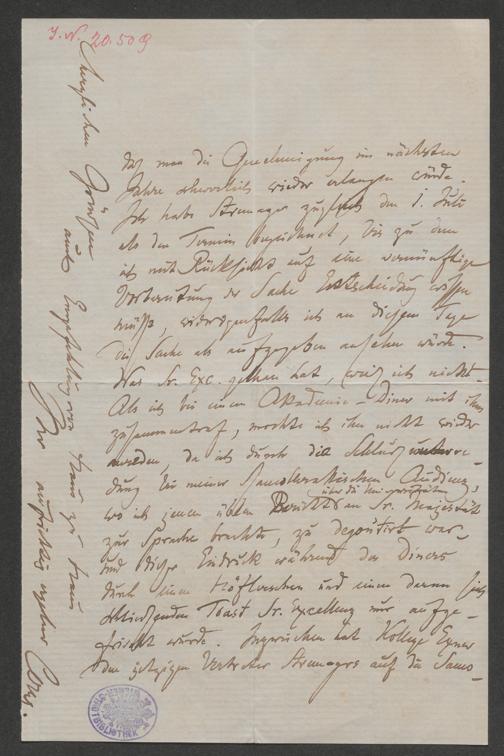 J. N. 20.509
daß man die Genehmigung im nächsten
Jahre schwerlich wieder erlangen würde.
Ich habe Stremayer zugleich den 1. Juli
als den Termin bezeichnet, bis zu dem
ich mit Rücksicht auf eine vernünftige
Vorbereitung der Sache Entscheidung wissen
muß, widrigenfalls ich an diesem Tage
die Sache als aufgegeben ansehen würde.
Was Sr. Exc. gethan hat, weiß ich nicht.
Als ich bei einem Akademie-Diner mit ihm
zusammentraf, mochte ich ihn nicht wieder
da ich durch die
dung bei meiner samothrakischen Audienz,
über die
wo ich jenen üblen Bericht an Sr. Majestät
zur Sprache brachte, zu degoutirt war
und dieser Eindruck während des Diners
durch einen und einen daran sich
schließenden Toast Sr. Excellenz nur aufge-
frischt wurde. Inzwischen hat College Exner
den jetzigen Vertreter Stremayers auf die Samo-
Herzlichen Grüßen
und Empfehlung von Frau zu Frau
Ihr aufrichtig ergebner Conze.
BIBLIOTHEK